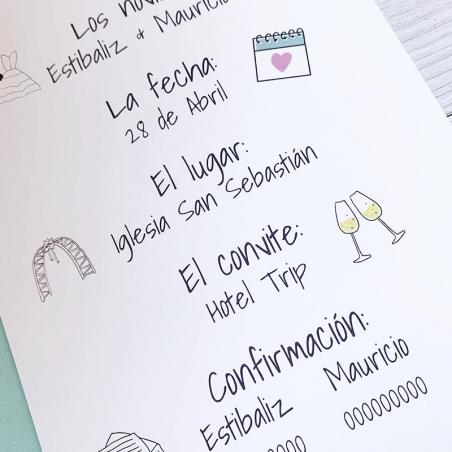 Los
Estibaliz & Mauricio
La fecha:
28 de Abril
El lugar:
Iglesia San Sebastián
El convite:
Hotel Trip
Confirmación:
Estibaliz Mauricio
000000000